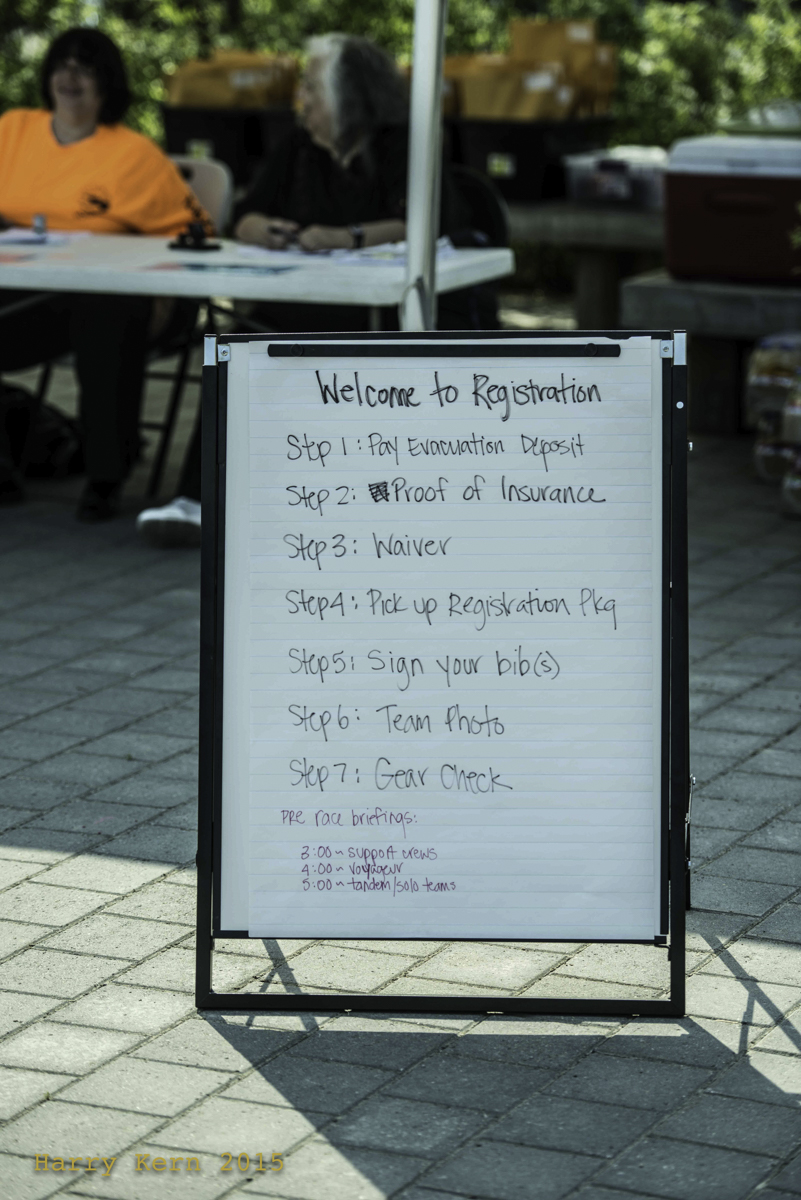 Welcome to Registration
Step 1: Pay Evacuation Deposit
Step 2: Proof of Insurance
Step 3: Waiver
Step 4: Pick up Registration Pkg
Step 5: Sign your bib(s)
Step 6: Team Photo
Step 7: Gear Check
PRE race briefings:
3:00 ~ support crews
4:00 ~ voyageur
5:00 ~ tandem/solo teams
Harry Kern 2015